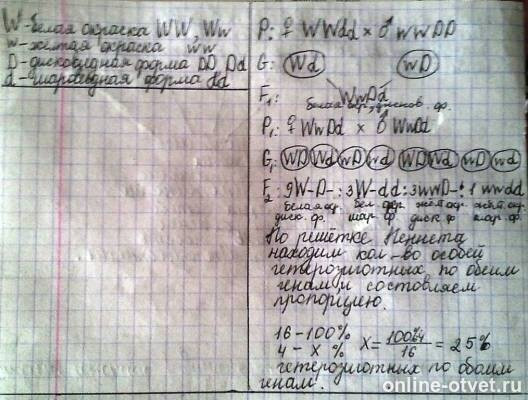 W-белая окраска WW, Ww
w-жёлтая окраска ww
D-дисковидная форма DD, Dd
d-шаровидная форма dd
P: ♀ WWdd × ♂ wwDD
G: Wd wD
F₁: WwDd
белая окр., дисков. ф.
P₁: ♀ WwDd × ♂ WwDd
G₁: WD Wd wD wd WD Wd wD wd
F₂: 9W-D-: 3W-dd: 3wwD-: 1 wwdd
белая окр. бел. окр. жёлт. окр. жёлт. окр.
диск. ф. шар. ф. диск. ф шар. ф.
По решётке Пеннета
находим кол-во особей
гетерозиготных по обеим
генам и составляем
пропорцию.
16-100%
4 - x %
X = 100·4/16 = 25%
гетерозиготных по обоим
генам.
online-otvet.ru